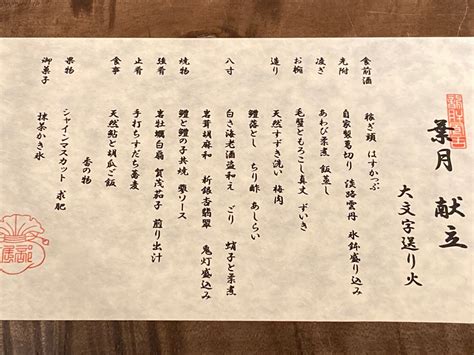 葉月 献立
大文字送り火
食前酒 稼ぎ頭 はすかっぷ
先附 自家製葛切り 淡路雲丹 氷鉢盛り込み
凌ぎ あわび柔煮 飯蒸し
お椀 毛蟹ともろこし真丈 ずいき
造り 天然すずき洗い 梅肉
鱧落し ちり酢 あしらい
八寸 白さ海老酒盗和え ごり 蛸子と柔煮
岩茸胡麻和 新銀杏翡翠 鬼灯盛込み
焼物 鱧と鱧の子共焼 ソース
強肴 岩牡蠣白扇 賀茂茄子 煎り出汁
止肴 手打ちすだち蕎麦
食事 天然鮎と ご飯
香の物
果物 シャインマスカット 求肥
御菓子 抹茶かき氷